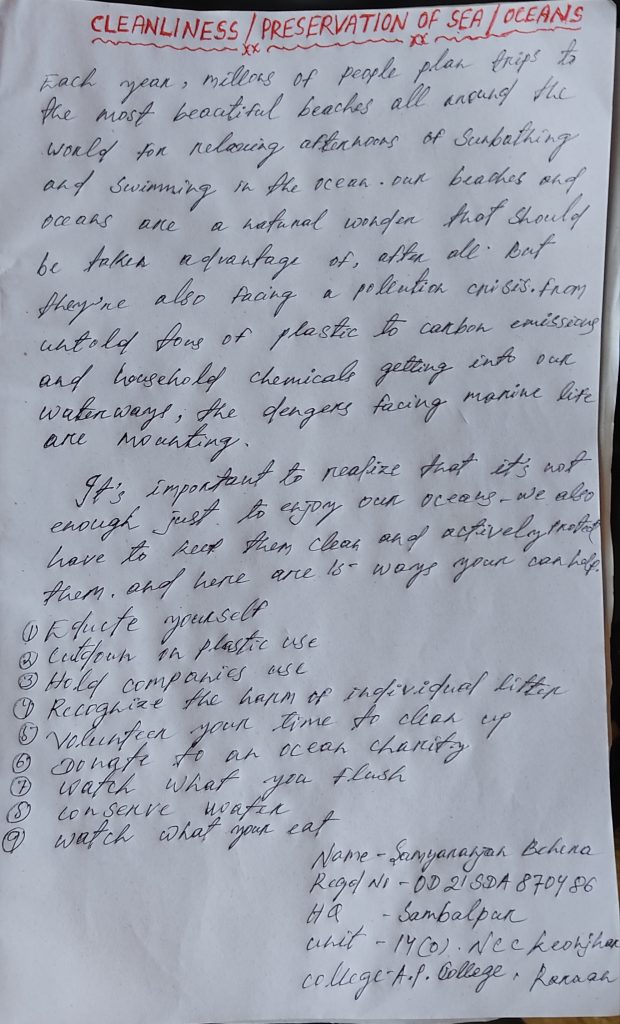 CLEANLINESS / PRESERVATION OF SEA / OCEANS
Each year, millons of people plan trips to
the most beautiful beaches all around the
world for relaxing afternoons of Sunbathing
and swimming in the ocean. our beaches and
oceans are a natural wonder that should
be taken advantage of, after all. But
they're also facing a pollution crisis. from
untold tons of plastic to carbon emissions
and household chemicals getting into our
waterways, the dengers facing marine life
are mounting.
It's important to realize that it's not
enough just to enjoy our oceans - we also
have to keep them clean and actively protect
them. and here are 15 - ways your can help.
① Educte yourself
② Cutdown on plastic use
③ Hold companies use
④ Recognize the harm of individual litter
⑤ Volunteer your time to clean up
⑥ Donate to an ocean charity
⑦ watch what you flush
⑧ conserve water
⑨ watch what your eat
Name - Samyaranjan Behera
Regd No - OD21SDA870486
HQ - Sambalpur
unit - 14(O). NCC Keonjhar
college - A.P. College, Remuan